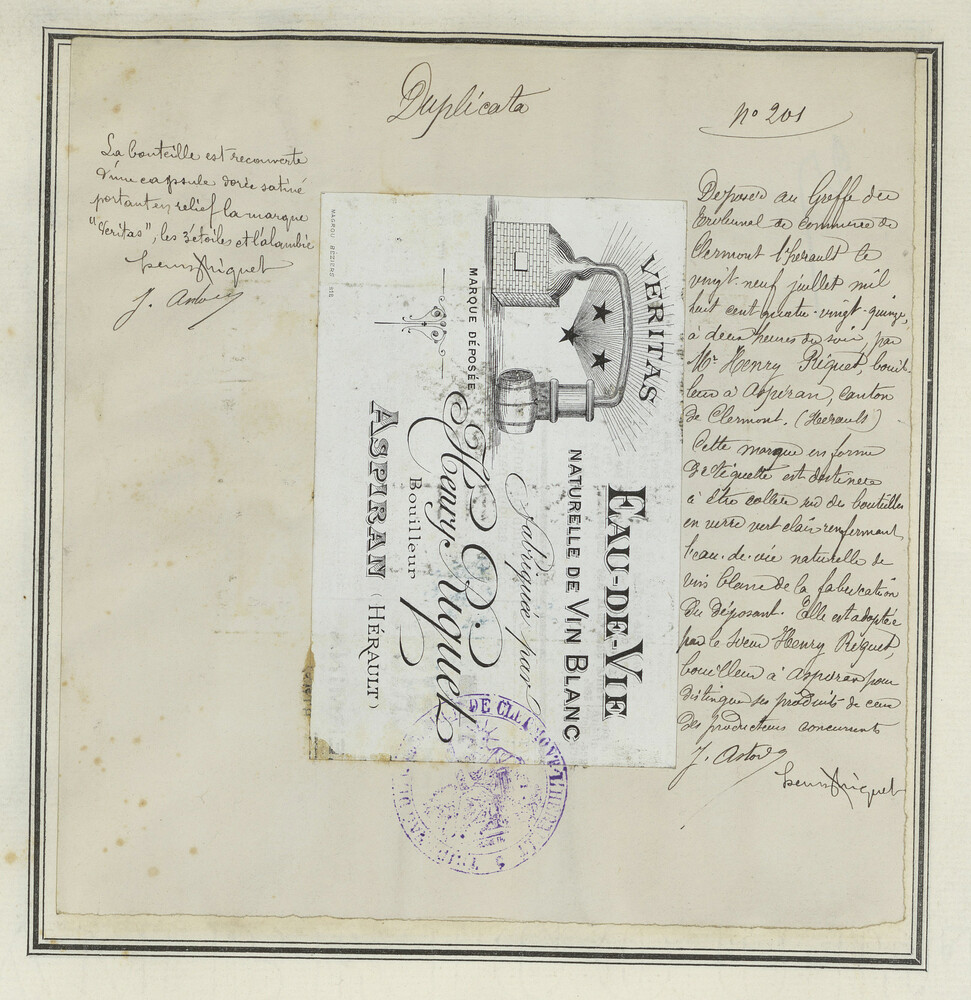 Duplicata
N° 201
La bouteille est recouverte
d'une capsule dorée satiné
portant en relief la marque
"Veritas", les 3 étoiles et l'alambic
Henry Riguet
J. Astoug
VERITAS
EAU-DE-VIE
NATURELLE DE VIN BLANC
Fabriquée par
Henry Riguet
Bouilleur
MARQUE DÉPOSÉE
ASPIRAN (HÉRAULT)
MAGROU BÉZIERS
DE CLERMONT-L'HÉRAULT
TRIBUNAL
Déposée au Greffe du
Tribunal de Commerce de
Clermont l'Herault le
vingt-neuf juillet mil
huit cent quatre-vingt-quinze,
à deux heures du soir, par
Mr Henry Riguet, bouil-
leur à Aspiran, canton
de Clermont. (Herault)
Cette marque en forme
d'etiquette est destinée
à être collée sur des bouteilles
en verre vert clair renfermant
l'eau-de-vie naturelle de
vin blanc de la fabrication
du déposant. Elle est adoptée
par le sieur Henry Riguet,
bouilleur à Aspiran pour
distinguer ses produits de ceux
des producteurs concurrents
Henry Riguet